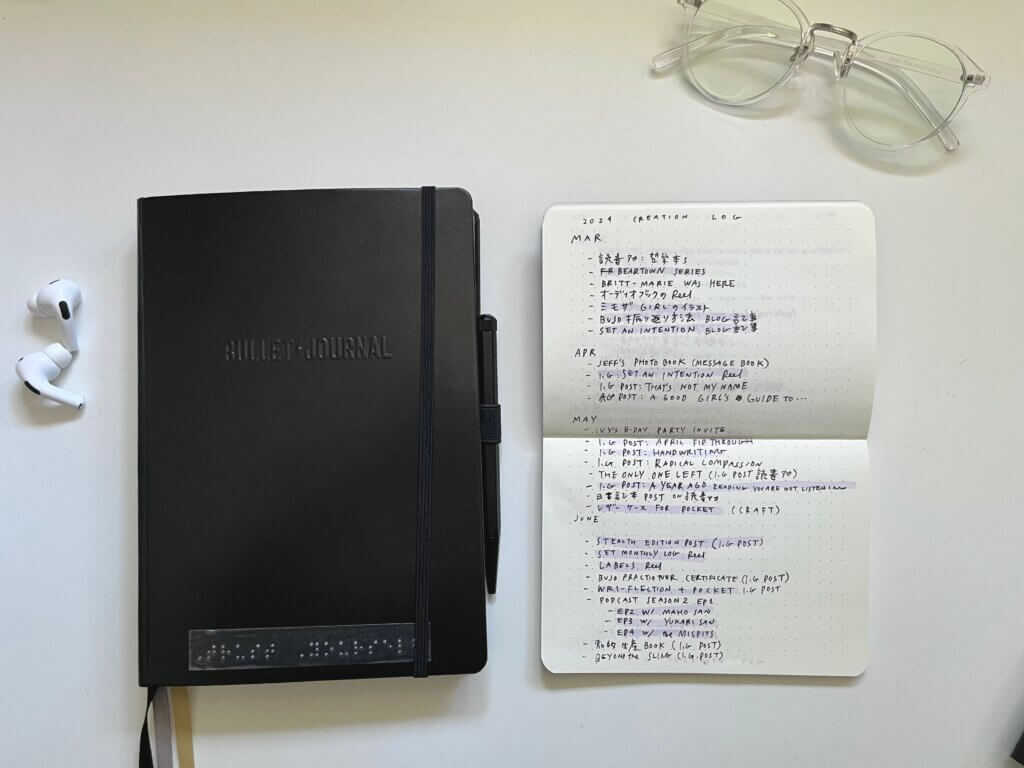 BULLET JOURNAL
2024 CREATION LOG
MAR
- 読書アカ: 哲学本5
- BEARTOWN SERIES
- BRITT-MARIE WAS HERE
- オーディオブックのReel
- ミモザ GIRLのイラスト
- BUJO 振り返り方法 BLOG 記事
- SET AN INTENTION BLOG 記事
APR
- JEFF'S PHOTO BOOK (MESSAGE BOOK)
- I.G. SET AN INTENTION Reel
- I.G POST: THAT'S NOT MY NAME
- POST: A GOOD GIRL'S GUIDE TO ...
MAY
- IVY'S B-DAY PARTY INVITE
- I.G POST: APRIL FLIPTHROUGH
- I.G POST: HANDWRITING
- I.G POST: RADICAL COMPASSION
- THE ONLY ONE LEFT (I.G POST 読書アカ)
- I.G POST: A YEAR AGO READING YOU ARE NOT LISTENING
- POST ON 読書アカ
- レザーケース FOR POCKET (CRAFT)
JUNE
- STEALTH EDITION POST (I.G POST)
- SET MONTHLY LOG Reel
- LABELS Reel
- BUJO PRACTIONER CERTIFICATE (I.G POST)
- WRI-FLECTION + POCKET I.G POST
- PODCAST SEASON 2 EP1
- EP2 W/ MAHO SAN
- EP3 W/ YUKARI SAN
- EP4 W/ the MISFITS
- 知的生産 BOOK (I.G POST)
- BEYOND the SLING (I.G. POST)